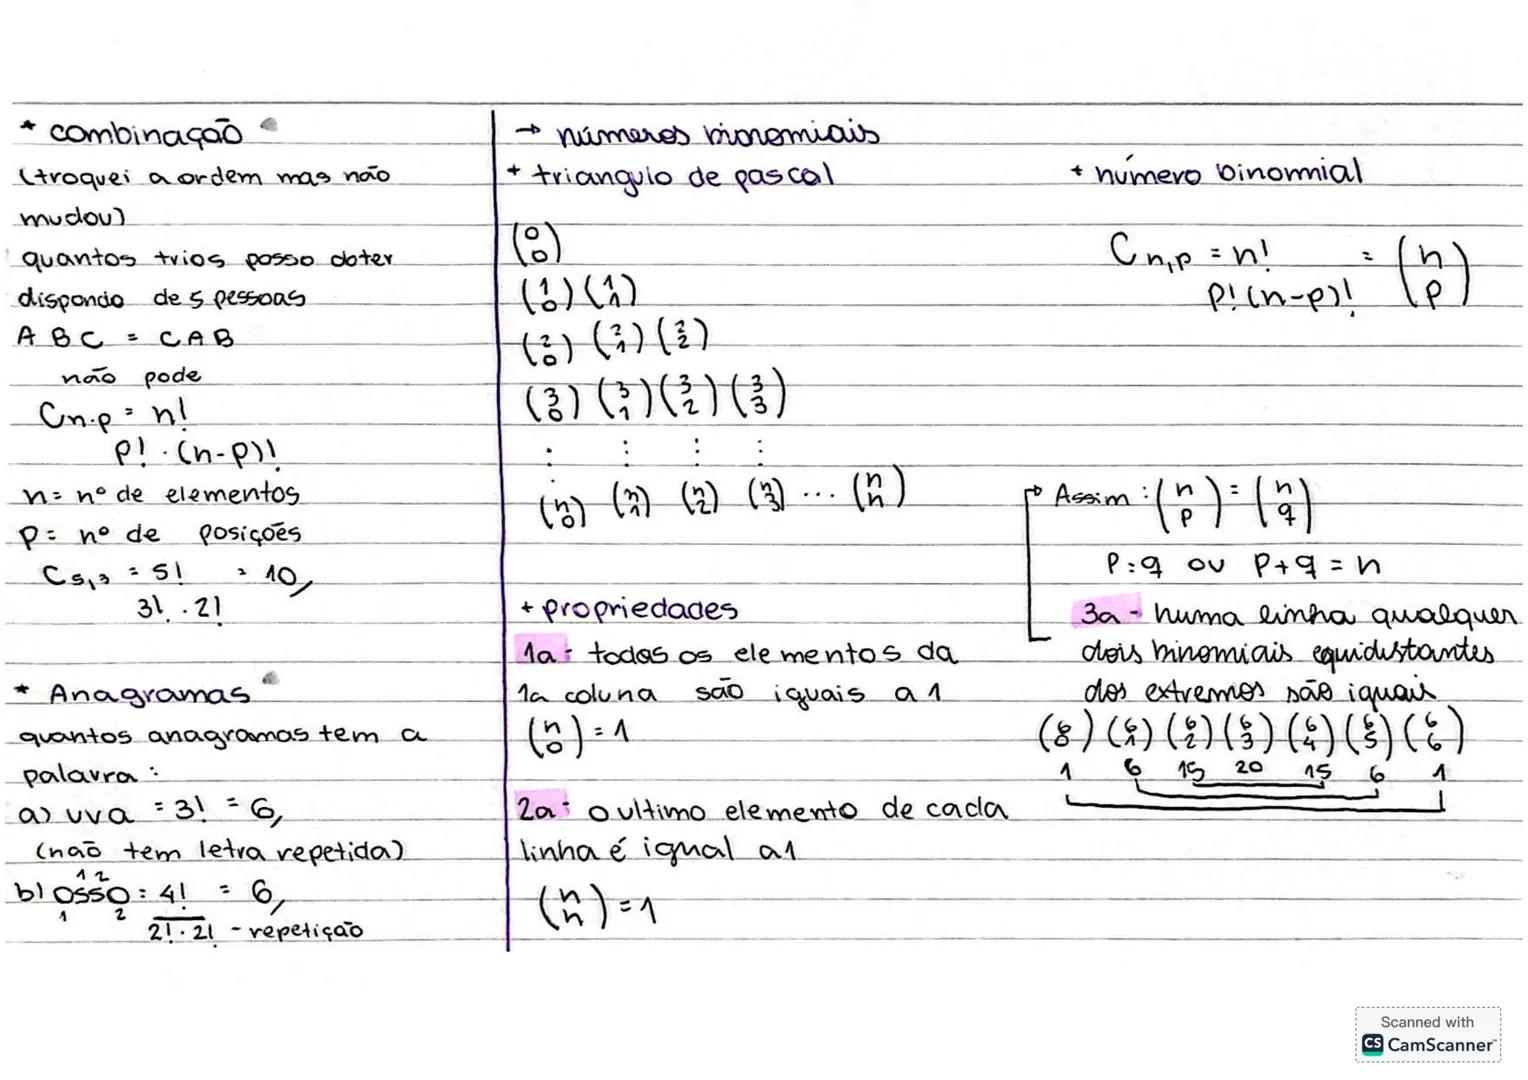 * combinação
(troquei a ordem mas não
mudou)
quantos trios posso obter
dispondo de 5 pessoas
A B C = C A B
não pode
Cn.p = n!
p! . (n-p)!
n = nº de elementos
p = nº de posições
C5,3 = 5! = 10,
3! . 2!
* Anagramas
quantos anagramas tem a
palavra:
a) uva = 3! = 6,
(não tem letra repetida)
1 2
b) osso = 4! = 6,
1 2
2! . 2! - repetição
→ números binomiais
+ triangulo de pascal
(0 0)
(1 0) (1 1)
(2 0) (2 1) (2 2)
(3 0) (3 1) (3 2) (3 3)
⋮ ⋮ ⋮ ⋮
(n 0) (n 1) (n 2) (n 3) ... (n n)
+ propriedades
1a - todos os elementos da
1a coluna são iguais a 1
(n 0) = 1
2a - o ultimo elemento de cada
linha é igual a 1
(n n) = 1
+ número binomial
Cn,p = n! = (n p)
p! (n-p)!
Assim : (n p) = (n q)
p = q ou p + q = n
3a - numa linha qualquer
dois binomiais equidistantes
dos extremos são iguais
(6 0) (6 1) (6 2) (6 3) (6 4) (6 5) (6 6)
1 6 15 20 15 6 1
Scanned with
CS CamScanner